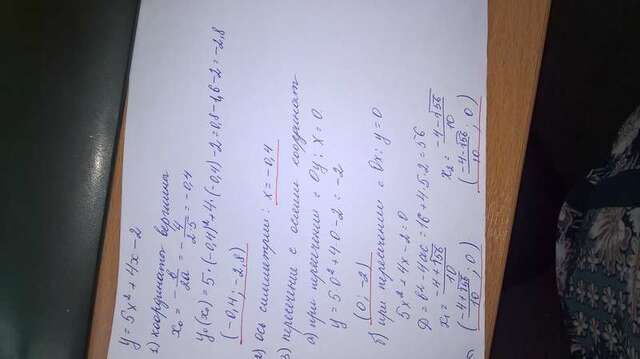 y = 5x² + 4x - 2
1) координаты вершины
x₀ = -в/2a = -4/2·5 = -0,4
y₀(x₀) = 5·(-0,4)² + 4·(-0,4) - 2 = 0,8 - 1,6 - 2 = -2,8
(-0,4; -2,8)
2) ось симметрии: x = -0,4
3) пересечение с осями координат
а) при пересечении с Oy: x = 0
y = 5·0² + 4·0 - 2 = -2
(0; -2)
б) при пересечении с Ox: y = 0
5x² + 4x - 2 = 0
D = в² - 4ac = 16 + 4·5·2 = 56
x₁ = -4+√56/10 x₂ = -4-√56/10
(-4+√56/10; 0) (-4-√56/10; 0)